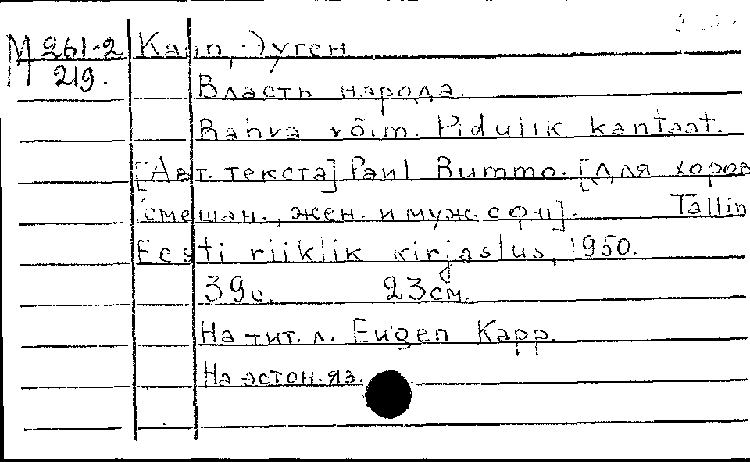 М 261-2 Капп, Эуген
219.
Власть народа.
Rahva võim. Pidulik kantaat.
[Авт. текста] Paul Rummo. [Для хоров
смешан., жен. и муж. с ф-п]. Tallin
Eesti riiklik kirjastus, 1950.
39с. 23см.
На тит. л. Eugen Kapp.
На эстон. яз.